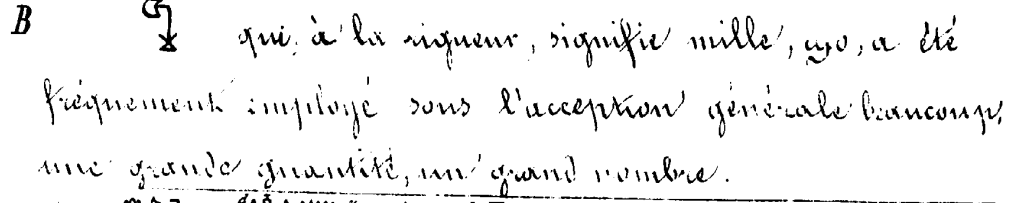 B qui, à la rigueur, signifie mille, a été
fréquemment employé sous l'acception générale beaucoup,
une grande quantité, un grand nombre.